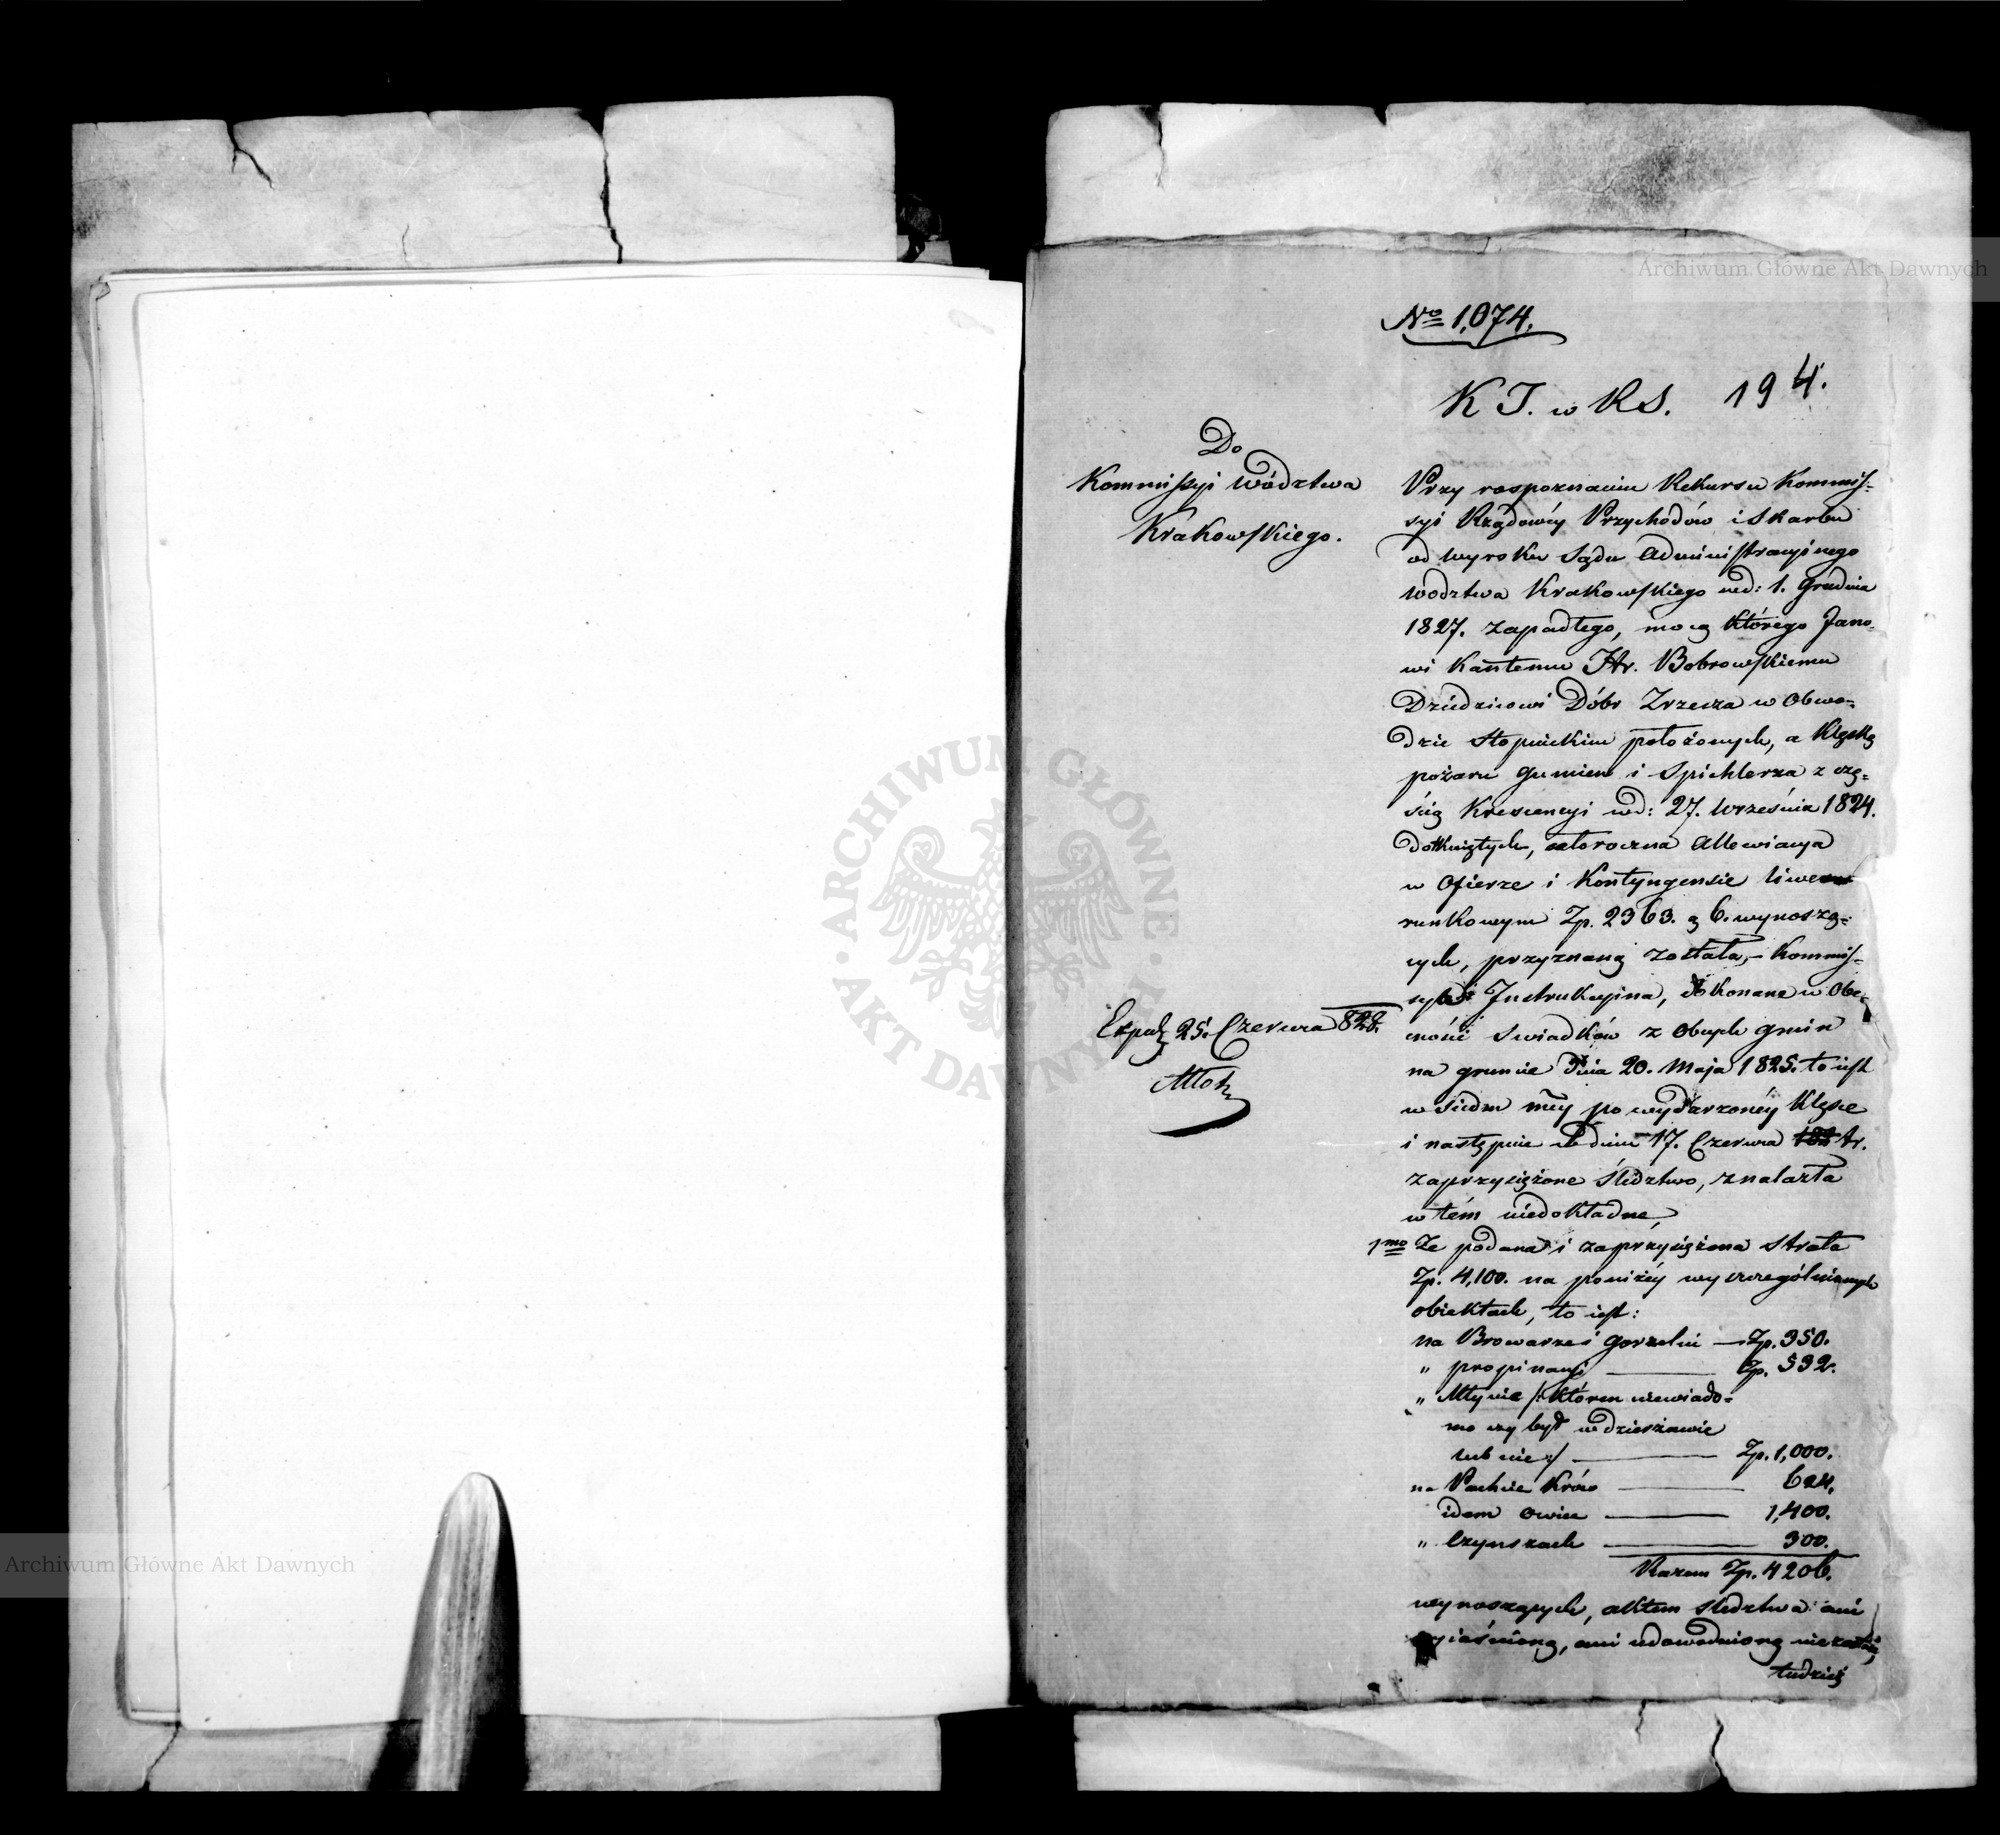 Archiwum Główne Akt Dawnych
No 1,074.
K J. w RS. 194.
Do
Kommissyi Wództwa
Krakowskiego.
Przy rozpoznaniu Rekursu Kommis-
syi Rządowéy Przychodów i Skarbu
od wyroku Sądu Administracyinego
Wództwa Krakowskiego w d: 1. Grudnia
1827. zapadłego, mocą którego Jano-
wi Kantemu Hr. Bobrowskiemu
Dziedzicowi Dóbr Zrzecza w Obwo-
dzie Stopnickim położonych, a klęską
pożaru gumien i Spichlerza z czę-
ścią Krescencyi w d: 27. Września 1824.
dotkniętych, całoroczna Allewiacya
w Ofierze i Kontyngensie liwe
runkowym Zp. 2363. g 6. wynoszą-
cych, przyznaną została, – Kommis-
sya Instrukcyina, dokonane w Obe-
cności Swiadków z Obcych gmin
na gruncie dnia 20. Maja 1825. to iest
w siedm mcy po wydarzonéy klęsce
i następnie w dniu 17. Czerwca tr.
zaprzysiężone Śledztwo, znalazła
w tém niedokładne,
1mo Ze podana i zaprzysiężona strata
Zp. 4,100. na poniżéy wyszczególnionych
obiektach, to iest:
na Browarze i gorzelni — Zp. 350.
" propinacyi — Zp. 532.
" Młynie /: którem niewiado-
mo czy był w dzierżawie
lub nie :/ — Zp. 1,000.
na Pachcie Krów — 624.
idem Owiec — 1,400.
" Czynszach — 300.
Razem Zp. 4206.
wynoszących, aktem śledztwa ani
iaśnioną, ani udowodnioną nie została,
tudzież
Exped 25. Czerwca 828.
ARCHIWUM GŁÓWNE AKT DAWNYCH
Archiwum Główne Akt Dawnych